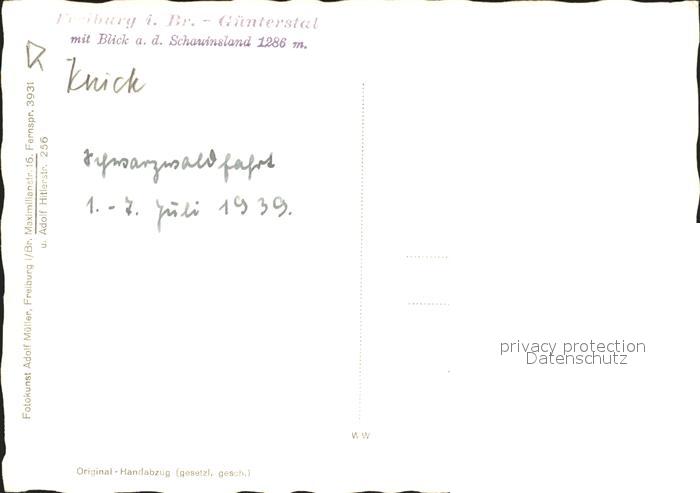 Freiburg i. Br. - Günterstal
mit Blick a. d. Schauinsland 1286 m.
Knick
Schwarzwaldfahrt
1. - 7. Juli 1939.
Fotokunst Adolf Müller, Freiburg i/Br. Maximilianstr. 16, Fernspr. 3931
u. Adolf Hitlerstr. 256
privacy protection
Datenschutz
WW
Original - Handabzug (gesetzl. gesch.)